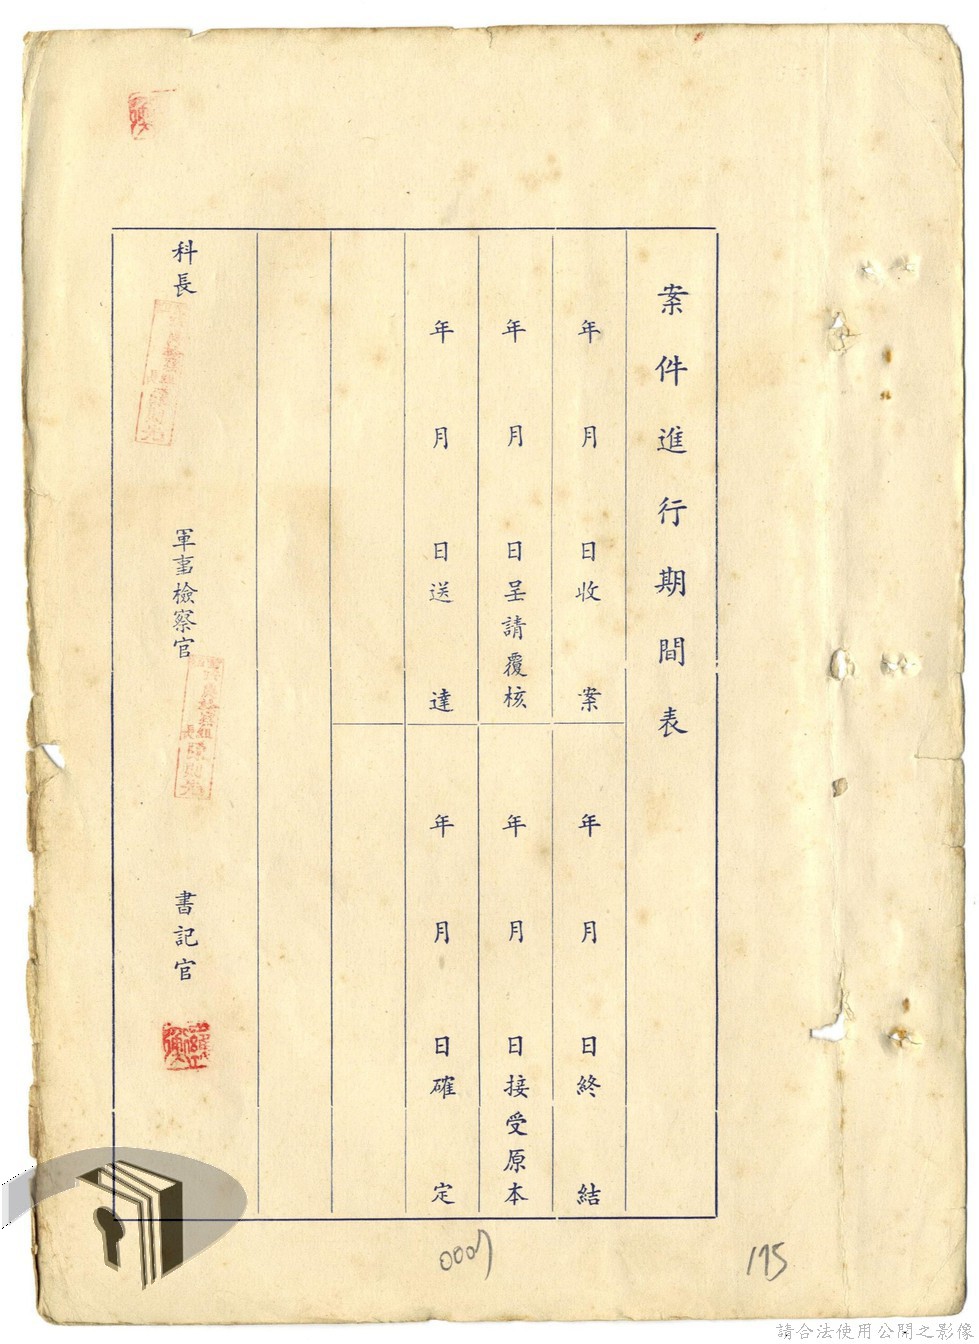 案件進行期間表
年 月 日收案
年 月 日終結
年 月 日呈請覆核
年 月 日接受原本
年 月 日送達
年 月 日確定
科長
軍事檢察官
書記官
0007
175
請合法使用公開之影像